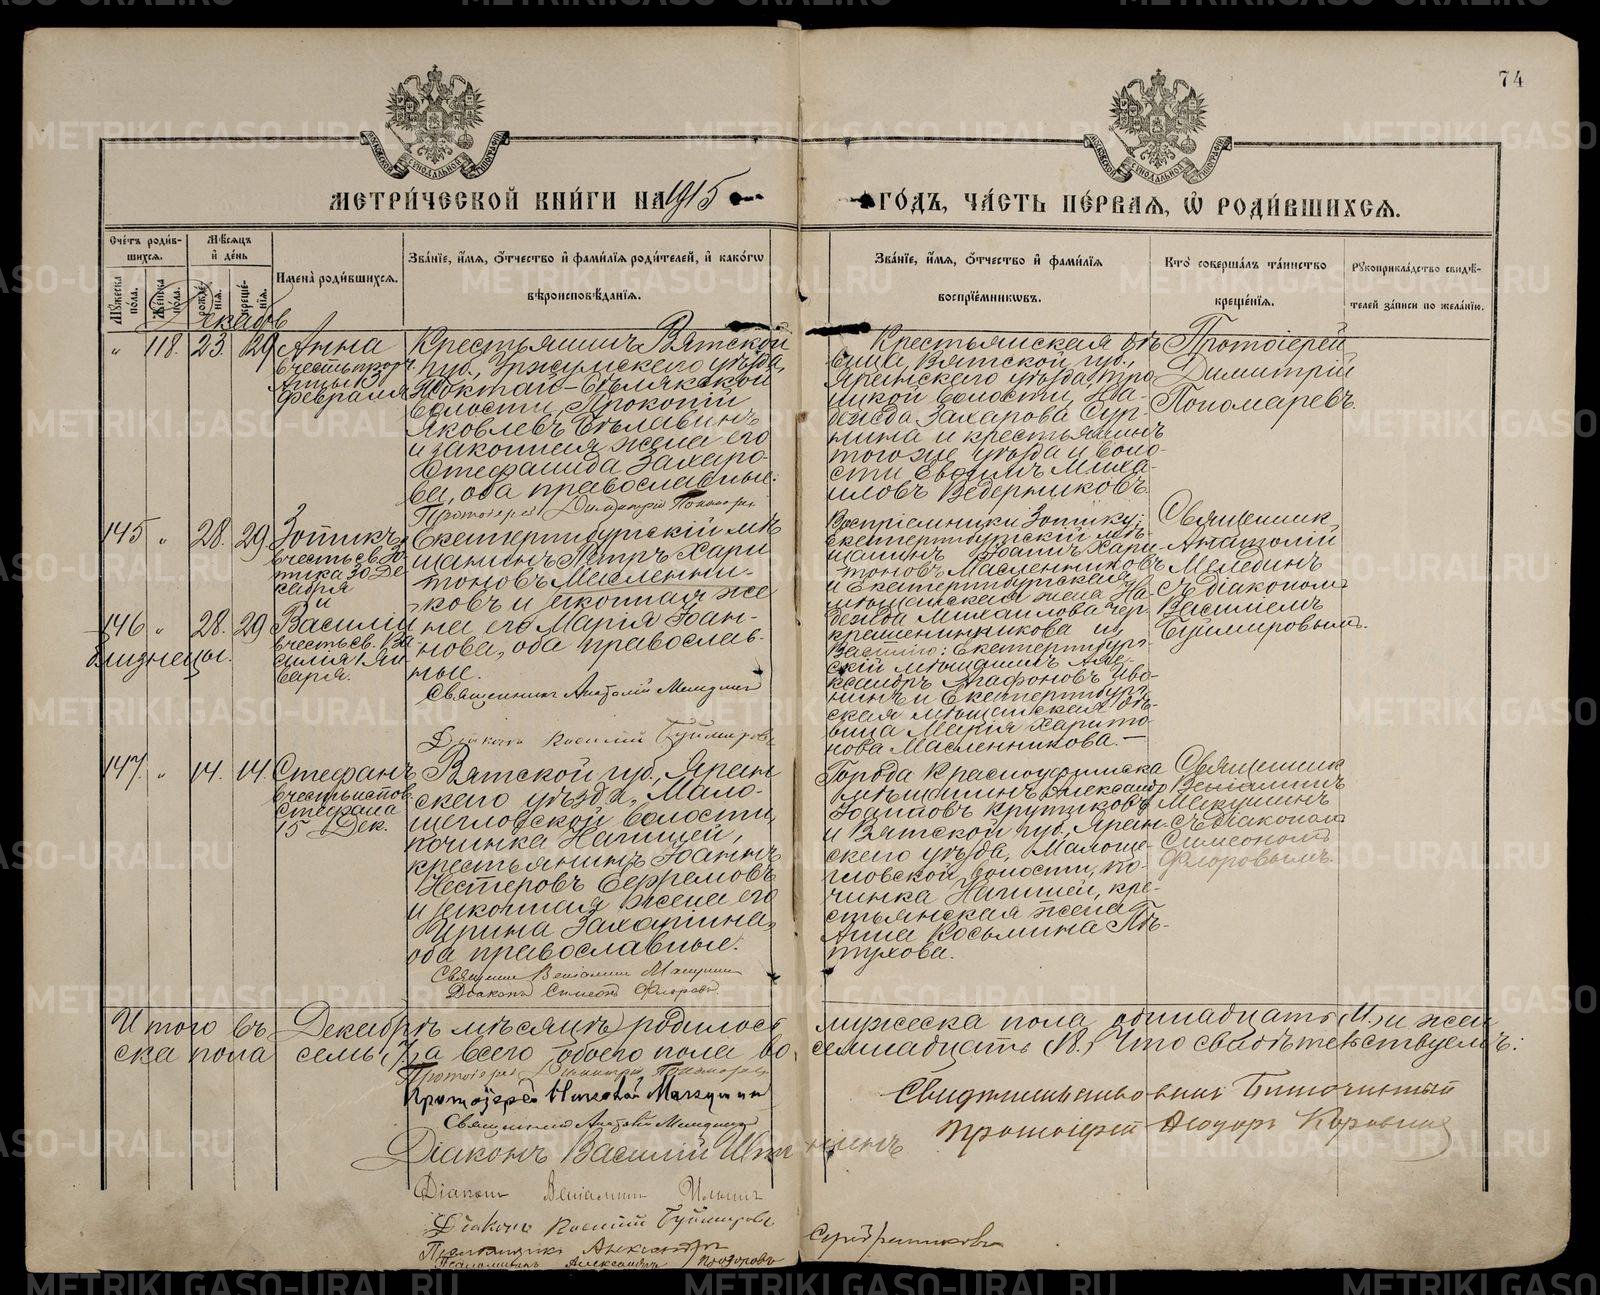 74
МЕТРИ́ЧЕСКОЙ КНИ́ГИ НА 1915
ГО́ДЪ, ЧА́СТЬ ПЕ́РВАЯ, Ѡ҆ РОДИ́ВШИХСЯ.
Сче́тъ роди́в-
шихся.
Мꙋ́жеска по́ла.
Же́нска по́ла.
Мѣ́сяцъ
и҆ де́нь
рожде́нія.
креще́нія.
Имена̀ роди́вшихся.
Зва́нїе, и҆́мя, ѻ҆́тчество и҆ фами́лїя роди́телей, и҆ како́гѡ
вѣроисповѣ́данїя.
Зва́нїе, и҆́мя, ѻ҆́тчество и҆ фами́лїя
воспрїе́мниковъ.
Кто̀ соверша́лъ та́инство
креще́нїя.
Рꙋкоприкла́дство свидѣ́-
телей за́писи по жела́нїю.
Декабрь
" 118. 23. 29
Анна
в честь прор.
Анны 3
февраля
Крестьянинъ Вятской
губ., Уржумскаго уѣзда,
Токтай-Бѣлякской
волости, Прокопій
Яковлевъ Бѣлавинъ
и законная жена его
Стефанида Захаро-
ва, оба православные.
Протоіерей Димитрій Пономарев
Крестьянская дѣ-
вица, Вятской губ.,
Яранскаго уѣзда, Тро-
ицкой волости, На-
дежда Захарова Бур-
нина и крестьянинъ
того же уѣзда и воло-
сти Евфимъ Миха-
иловъ Ведерниковъ
Протоіерей
Димитрій
Пономаревъ.
145 " 28. 29
Зотикъ
в честь св. Зо-
тика 30 Де-
кабря
и
Екатеринбургскій мѣ-
щанинъ Петръ Хари-
тоновъ Масленни-
ковъ и законная же-
на его Марія Іоан-
нова, оба православ-
ные.
146 " 28. 29
близнецы.
Василій
в честь св. Ва-
силія 1 Ян-
варя.
Священникъ Анатолій Мелединъ
Діаконъ Василій Буймировъ
Воспріемники Зотику:
Екатеринбургскій мѣ-
щанинъ Іоаннъ Хари-
тоновъ Масленниковъ
и Екатеринбургская
мѣщанская жена На-
дежда Михаилова Чер-
крашенинникова и
Василію: Екатеринбург-
скій мѣщанинъ Але-
ксандръ Агафоновъ Ива-
нинъ и Екатеринбург-
ская мѣщанская дѣ-
вица Марія Харито-
нова Масленникова.—
Священник
Анатолій
Мелединъ
съ діакономъ
Василіемъ
Буймировымъ.
147. " 14. 14.
Стефанъ
в честь испов.
Стефана
15 Дек.
Вятской губ., Яран-
скаго уѣзда, Мало-
щегловской волости,
починка
крестьянинъ Іоаннъ
Нестеровъ Ефремовъ
и законная жена его
Ирина Захаріина,
оба православные.
Священник Веніамин Макушин
Діаконъ Симеонъ Флоровъ.
Города Красноуфимска
мѣщанинъ Александръ
Іоанновъ Крутиковъ
и Вятской губ., Яран-
скаго уѣзда, Малоще-
гловской волости, по-
чинка кре-
стьянская жена
Анна Косьмина Пѣ-
тухова.
Священник
Веніаминъ
Макушинъ
съ діакономъ
Симеономъ
Флоровымъ.
Итого въ Декабрѣ мѣсяцѣ родилось мужеска пола одинадцать (11.) и жен-
ска пола семь (7), а всего обоего пола во- семнадцать (18.) Что свидѣтельствуемъ:
Протоіерей Димитрій Пономарев
Протоіерей Николай Макушин
Священник Анатолій Мелединъ
Діаконъ Василій
Діаконъ Веніаминъ Ильинъ
Діаконъ Василій Буймировъ
Псаломщикъ Александръ Серебренниковъ
Псаломщикъ Александръ
Благочинный
протоіерей Ѳеодоръ Коровинъ
METRIKI.GASO-URAL.RU